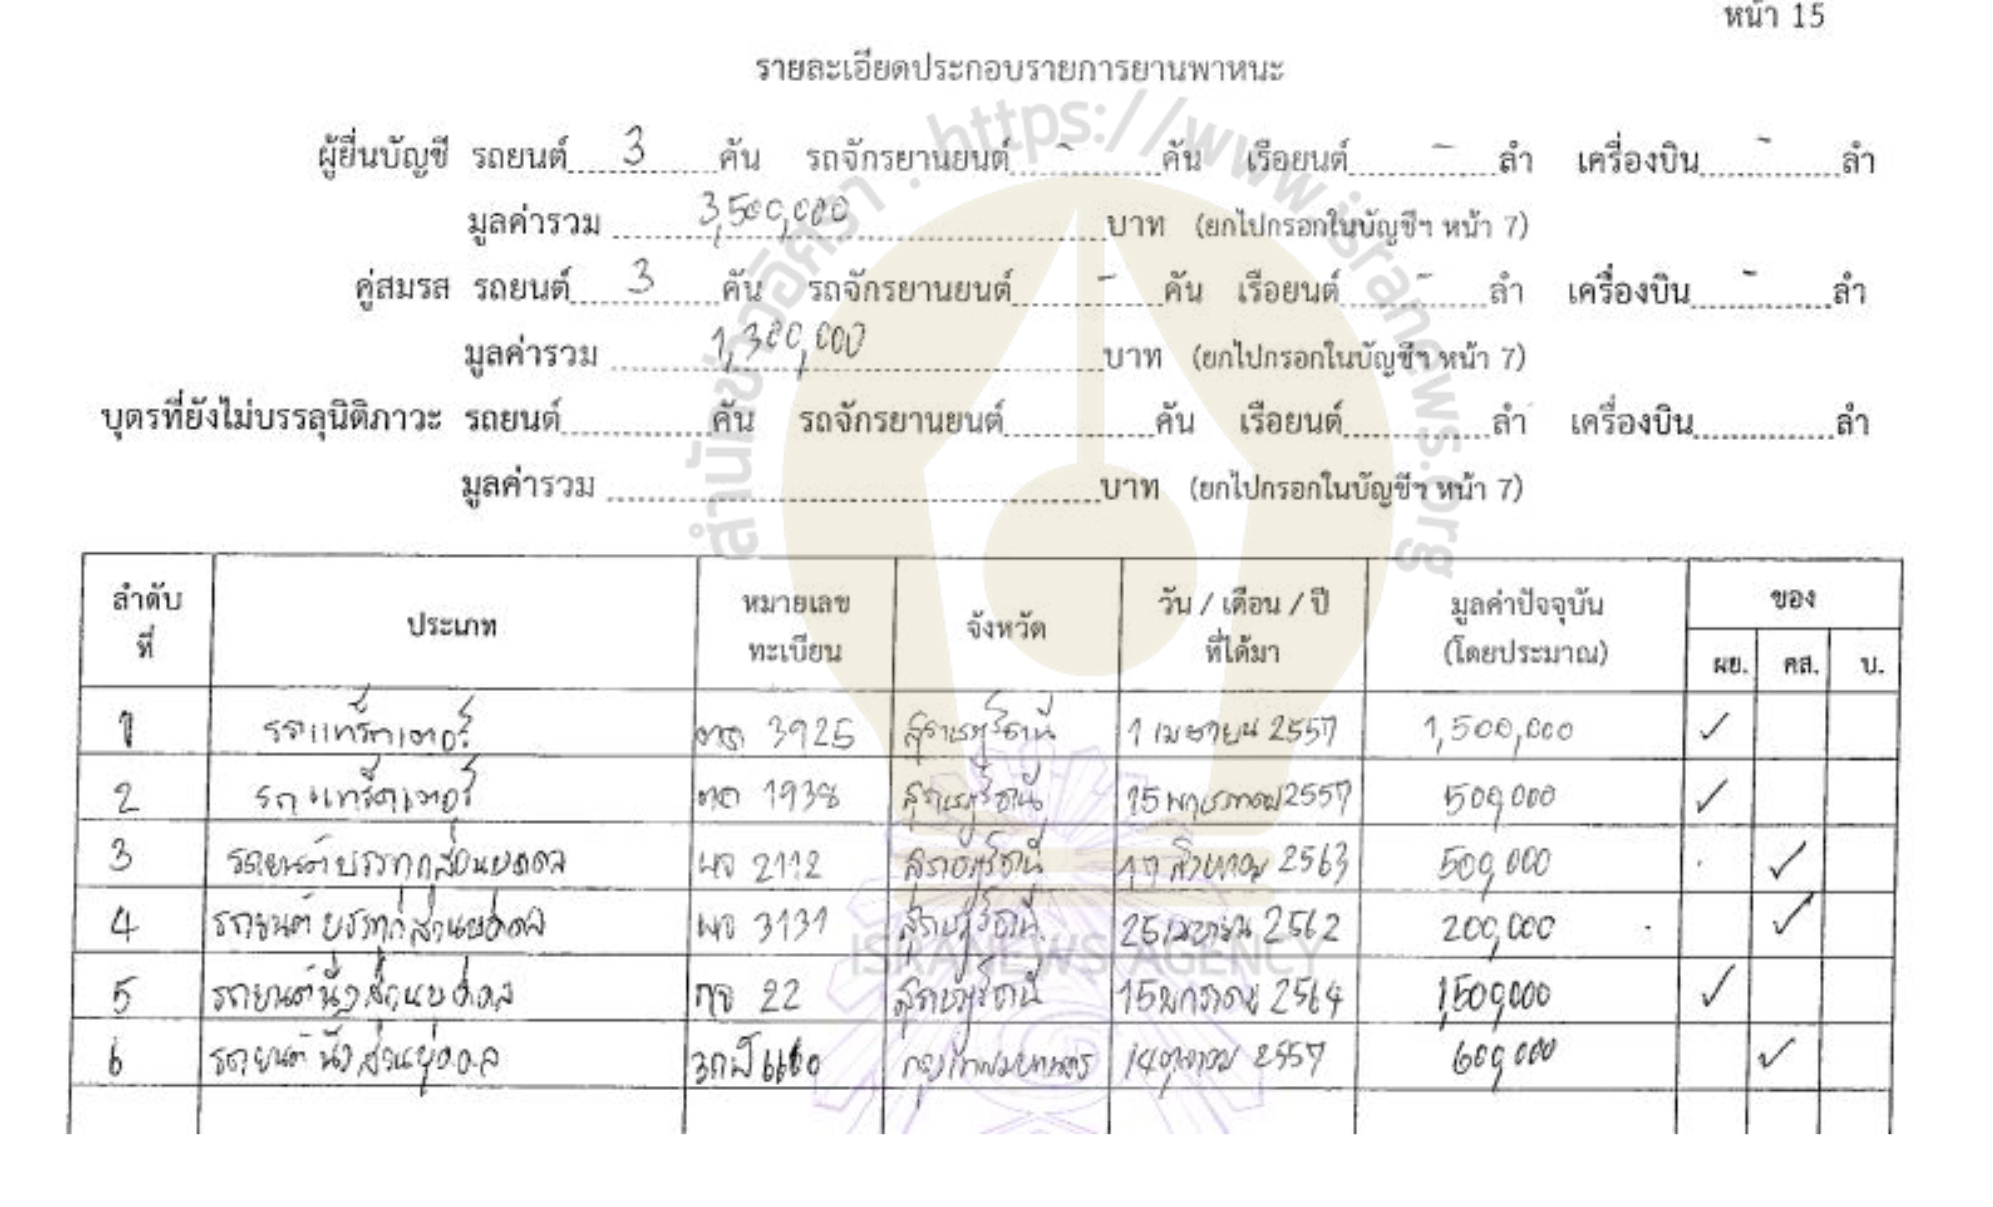 หน้า 15
รายละเอียดประกอบรายการยานพาหนะ
ผู้ยื่นบัญชี รถยนต์ 3 คัน รถจักรยานยนต์ - คัน เรือยนต์ - ลำ เครื่องบิน - ลำ
มูลค่ารวม 3,500,000 บาท (ยกไปกรอกในบัญชีฯ หน้า 7)
คู่สมรส รถยนต์ 3 คัน รถจักรยานยนต์ - คัน เรือยนต์ - ลำ เครื่องบิน - ลำ
มูลค่ารวม 1,300,000 บาท (ยกไปกรอกในบัญชีฯ หน้า 7)
บุตรที่ยังไม่บรรลุนิติภาวะ รถยนต์ คัน รถจักรยานยนต์ คัน เรือยนต์ ลำ เครื่องบิน ลำ
มูลค่ารวม บาท (ยกไปกรอกในบัญชีฯ หน้า 7)
ลำดับที่ ประเภท หมายเลขทะเบียน จังหวัด วัน / เดือน / ปี ที่ได้มา มูลค่าปัจจุบัน (โดยประมาณ) ของ
ผย. คส. บ.
1 รถแทร็กเตอร์ 3925 สุราษฎร์ธานี 1 เมษายน 2557 1,500,000 ✓
2 รถแทร็กเตอร์ 1938 สุราษฎร์ธานี 15 พฤษภาคม 2557 500,000 ✓
3 รถยนต์บรรทุกส่วนบุคคล 2112 สุราษฎร์ธานี สิงหาคม 2563 500,000 ✓
4 รถยนต์บรรทุกส่วนบุคคล 3131 สุราษฎร์ธานี 25 เมษายน 2562 200,000 ✓
5 รถยนต์นั่งส่วนบุคคล 22 สุราษฎร์ธานี 15 มกราคม 2564 1,500,000 ✓
6 รถยนต์นั่งส่วนบุคคล 6660 กรุงเทพมหานคร 14 ตุลาคม 2557 600,000 ✓
สำนักข่าวอิศรา . https://www.isranews.org
ISRANEWS AGENCY